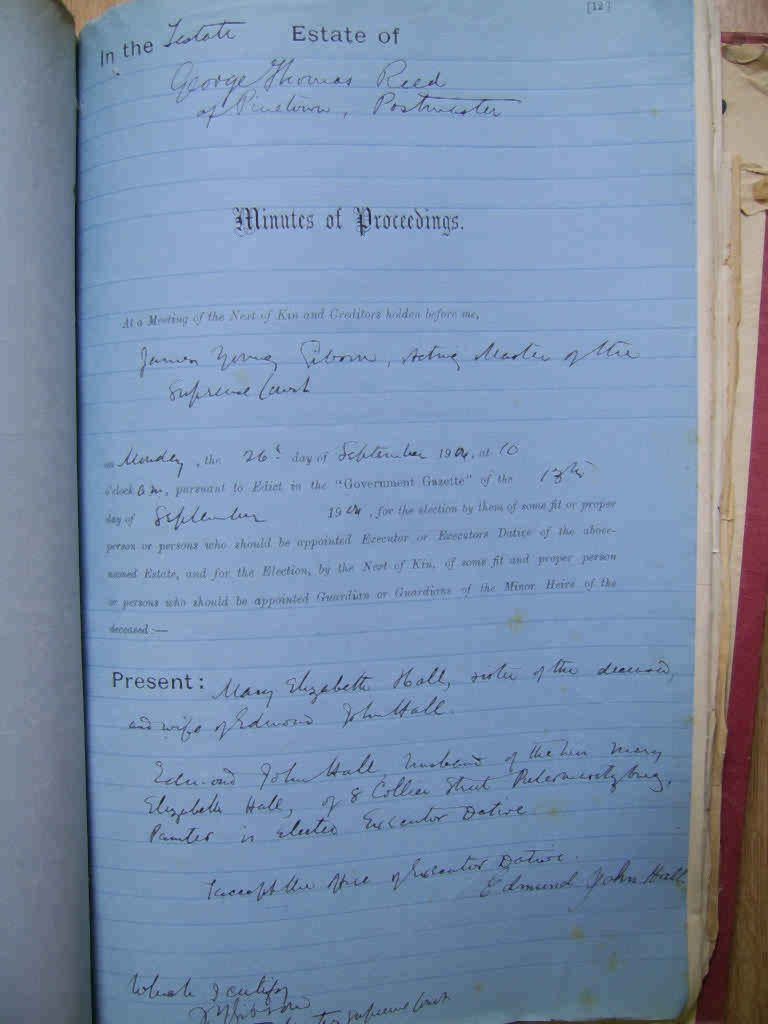 [12]
In the Testate Estate of
George Thomas Reed
of Pinetown, Postmaster
Minutes of Proceedings.
At a Meeting of the Next of Kin and Creditors holden before me,
James Young Gibson, Acting Master of the
Supreme Court
on Monday, the 26th day of September 1904, at 10
o'clock a m, pursuant to Edict in the "Government Gazette" of the
day of September 1904, for the election by them of some fit or proper
person or persons who should be appointed Executor or Executors Dative of the above-
named Estate, and for the Election, by the Next of Kin, of some fit and proper person
or persons who should be appointed Guardian or Guardians of the Minor Heirs of the
deceased:—
Present: Mary Elizabeth Hall, sister of the deceased,
and wife of Edmund John Hall.
Edmund John Hall husband of the Mary
Elizabeth Hall, of 8 Collier Street Pietermaritzburg,
Painter is elected Executor Dative.
I accept the office of Executor Dative.
Edmund John Hall
Which I certify
J Y Gibson
Supreme Court